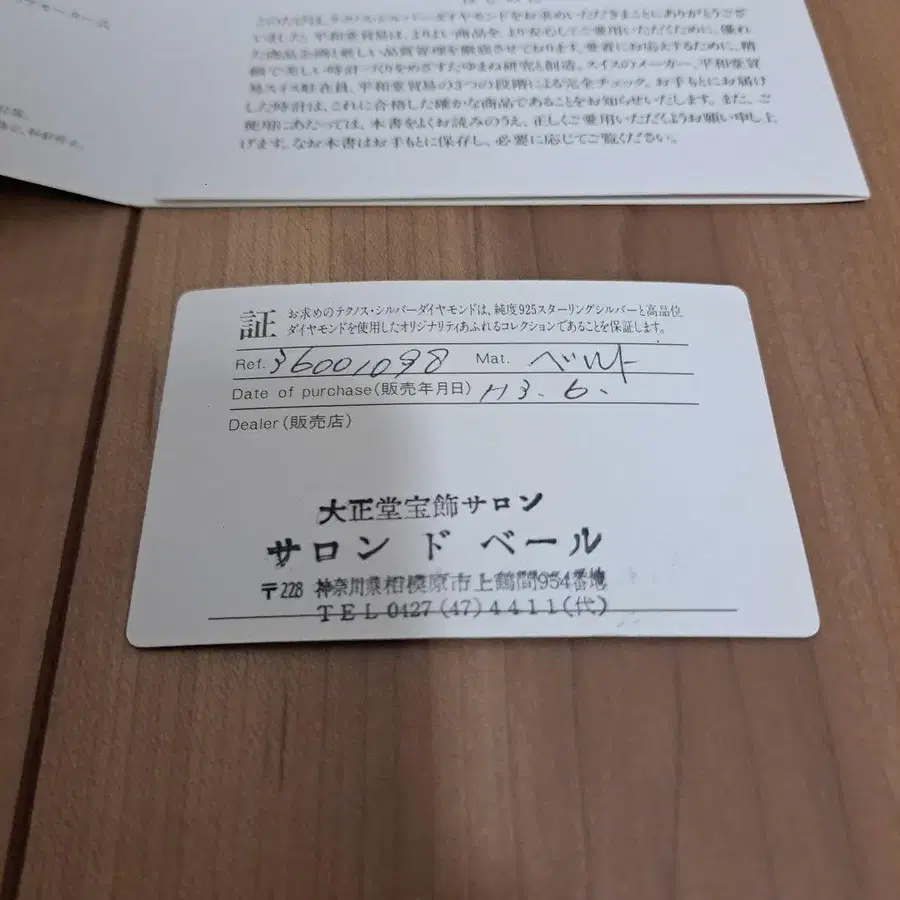 はじめに
このたびは、テクノス・シルバーダイヤモンドをお求めいただきまことにありがとうござ
いました。平和堂貿易は、よりよい商品を、より安心してご愛用いただくために、優れ
た商品企画と厳しい品質管理を徹底させております。愛着にお応えするために、精
機で美しい時計づくりをめざすたゆまぬ研究と創造、スイスのメーカー、平和堂貿
易スイス駐在員、平和堂貿易の3つの段階による完全チェック。お手もとにお届け
した時計は、これに合格した確かな商品であることをお知らせいたします。また、ご
使用にあたっては、本書をよくお読みのうえ、正しくご愛用いただくようお願い申し上
げます。なお本書はお手もとに保存し、必要に応じてご覧ください。
証 お求めのテクノス・シルバーダイヤモンドは、純度925スターリングシルバーと高品位
ダイヤモンドを使用したオリジナリティあふれるコレクションであることを保証します。
Ref. 36001098 Mat. ベルト
Date of purchase(販売年月日) H3.6.
Dealer(販売店)
大正堂宝飾サロン
サロン ド ベール
〒228 神奈川県相模原市上鶴間954番地
TEL 0427(47)4411(代)